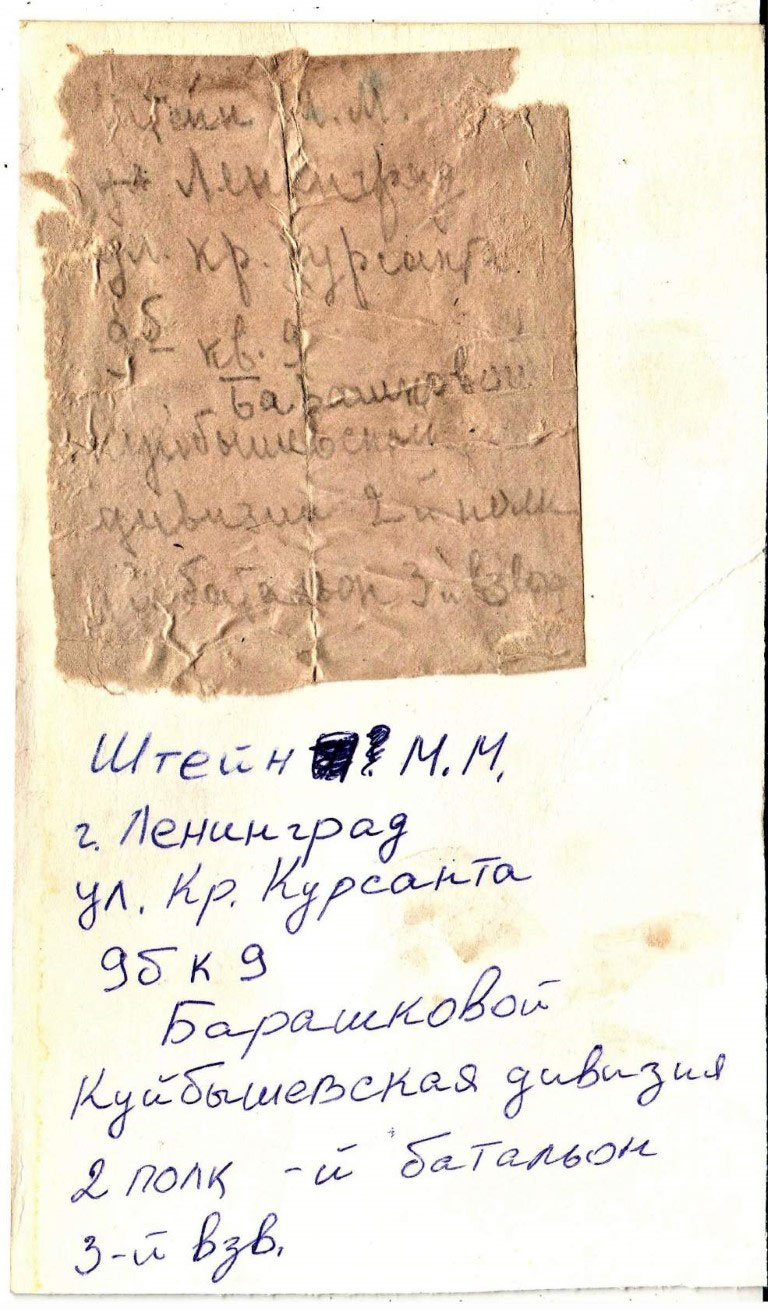 Штейн М.М.
Ленинград
ул. кр. курсанта
9б кв. 9
Барашковой
Куйбышевской
дивизии 2й полк
й батальон 3й взвод
Штейн ? М.М.
г. Ленинград
ул. Кр. Курсанта
9б к 9
Барашковой
Куйбышевская дивизия
2 полк -й батальон
3-й взв.